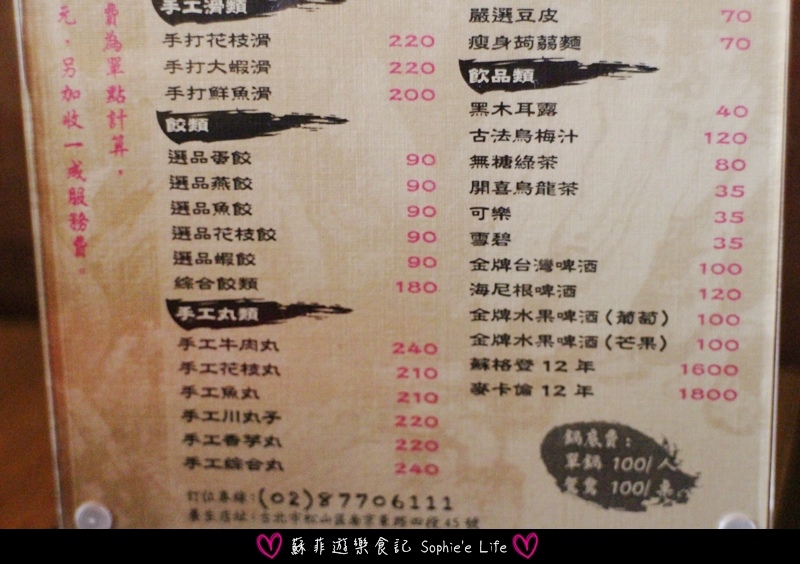 費為單點計算，
元，另加收一成服務費。
手工滑類
手打花枝滑 220
手打大蝦滑 220
手打鮮魚滑 200
餃類
選品蛋餃 90
選品燕餃 90
選品魚餃 90
選品花枝餃 90
選品蝦餃 90
綜合餃類 180
手工丸類
手工牛肉丸 240
手工花枝丸 210
手工魚丸 210
手工川丸子 220
手工香芋丸 220
手工綜合丸 240
訂位專線：(02)87706111
養生店址：台北市松山區南京東路四段45號
嚴選豆皮 70
瘦身蒟蒻麵 70
飲品類
黑木耳露 40
古法烏梅汁 120
無糖綠茶 80
開喜烏龍茶 35
可樂 35
雪碧 35
金牌台灣啤酒 100
海尼根啤酒 120
金牌水果啤酒(葡萄) 100
金牌水果啤酒(芒果) 100
蘇格登 12 年 1600
麥卡倫 12 年 1800
鍋底費：
單鍋 100/人
鴛鴦 100/桌
蘇菲遊樂食記 Sophie'e Life